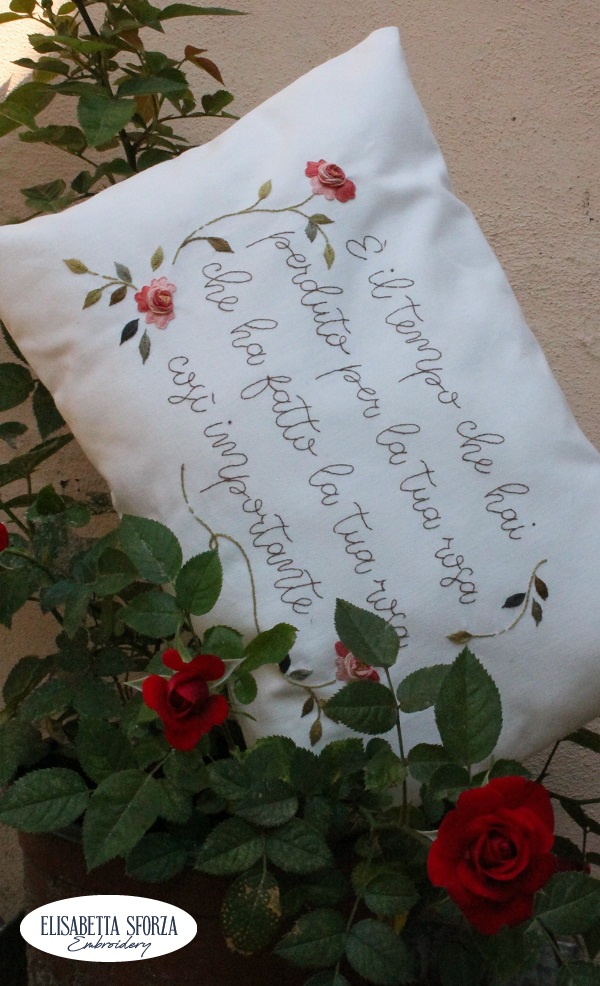 È il tempo che hai
perduto per la tua rosa
che ha fatto la tua rosa
così importante
ELISABETTA SFORZA
Embroidery